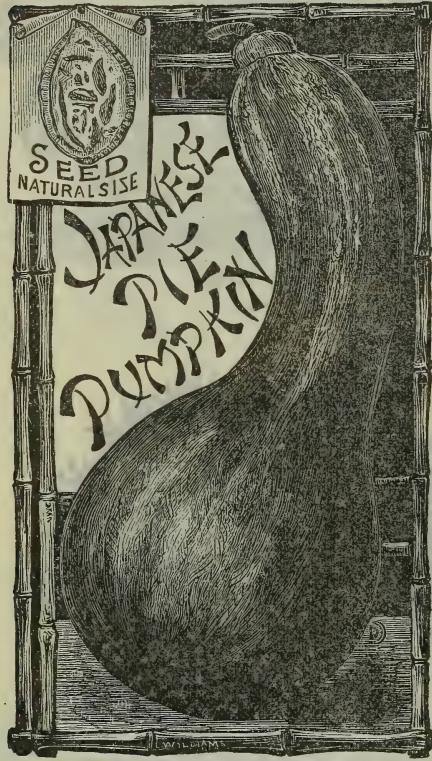 SEED
NATURAL SIZE
JAPANESE
PIE
PUMPKIN
WILLIAMS